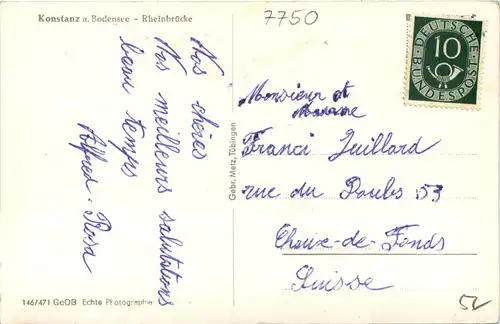 Konstanz a. Bodensee - Rheinbrücke
7750
Nos chères
Nos meilleurs salutations
beau temps
Alfred - Rosa
Gebr. Metz, Tübingen
DEUTSCHE
10
BUNDESPOST
Monsieur et
Madame
Franci Juillard
rue du Doubs 153
Chaux-de-Fonds
Suisse
146/471 GeOB Echte Photographie